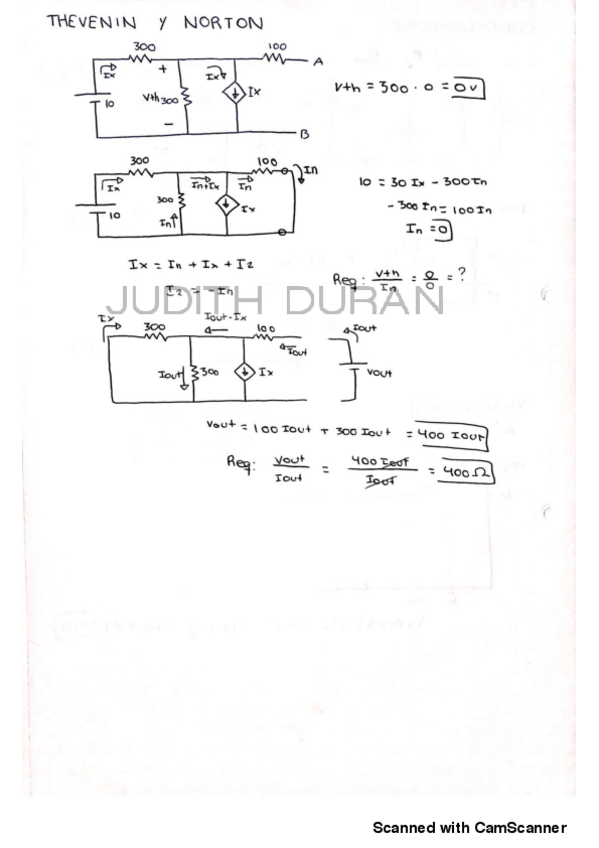 THEVENIN Y NORTON
300
100
Ix
+
Ix
A
10
Vth 300
Ix
Vth = 300 · 0 = 0v
−
B
300
100
In
Ix
In+Ix
In
10 = 30 Ix - 300In
300
Ix
-300 In = 100In
10
In
In = 0
Ix = In + Ix + I2
Req: Vth/In = 0/0 = ?
I2 = -In
JUDITH DURAN
Ix
300
Iout-Ix
100
Iout
Iout
Iout
300
Ix
Vout
Vout = 100 Iout + 300 Iout = 400 Iout
Req: Vout/Iout = 400 Iout/Iout = 400Ω
Scanned with CamScanner